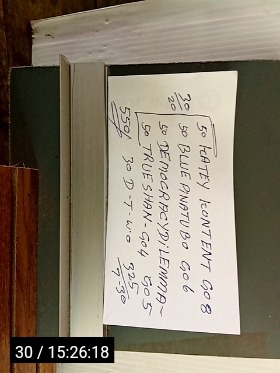 50 LATEY KONTENT GO8
30 50 BLUE PINATUBO GO6
20 50 DEMOCRACYDILEMMA~ GO5
50 TRUESHAN-GO4
550/ 30 D-T-W.O 325
7-30
30 / 15:26:18